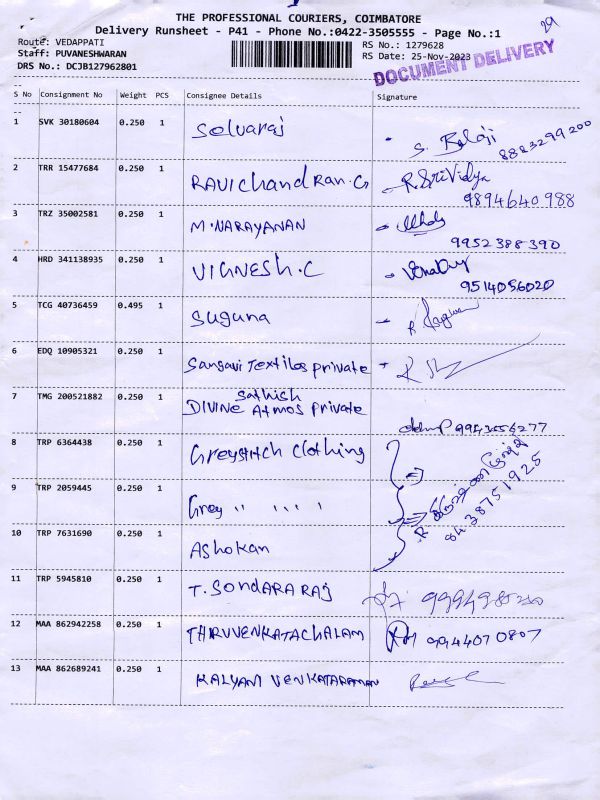 THE PROFESSIONAL COURIERS, COIMBATORE
29
Delivery Runsheet - P41 - Phone No.:0422-3505555 - Page No.:1
Route: VEDAPPATI
RS No.: 1279628
Staff: PUVANESHWARAN
RS Date: 25-Nov-2023
DRS No.: DCJB127962801
DOCUMENT DELIVERY
S No Consignment No Weight PCS Consignee Details Signature
1 SVK 30180604 0.250 1 Selvaraj S. Balaji 8883299200
2 TRR 15477684 0.250 1 RAVIChandRan.G R.SriVidya
9894640988
3 TRZ 35002581 0.250 1 M.NARAYANAN
9952388390
4 HRD 341138935 0.250 1 VIGNESH.C
9514056020
5 TCG 40736459 0.495 1 Suguna
6 EDQ 10905321 0.250 1 Sangavi Textiles private
7 TMG 200521882 0.250 1 Sathish
DIVINE Atmos private
8 TRP 6364438 0.250 1 Greystitch Clothing
9 TRP 2059445 0.250 1 Grey ,, ,, ,,
8438751925
10 TRP 7631690 0.250 1 Ashokan
11 TRP 5945810 0.250 1 T.SONDARARAJ
12 MAA 862942258 0.250 1 THIRUVENKATACHALAM 9944070807
13 MAA 862689241 0.250 1 KALYANI VENKATARAMAN